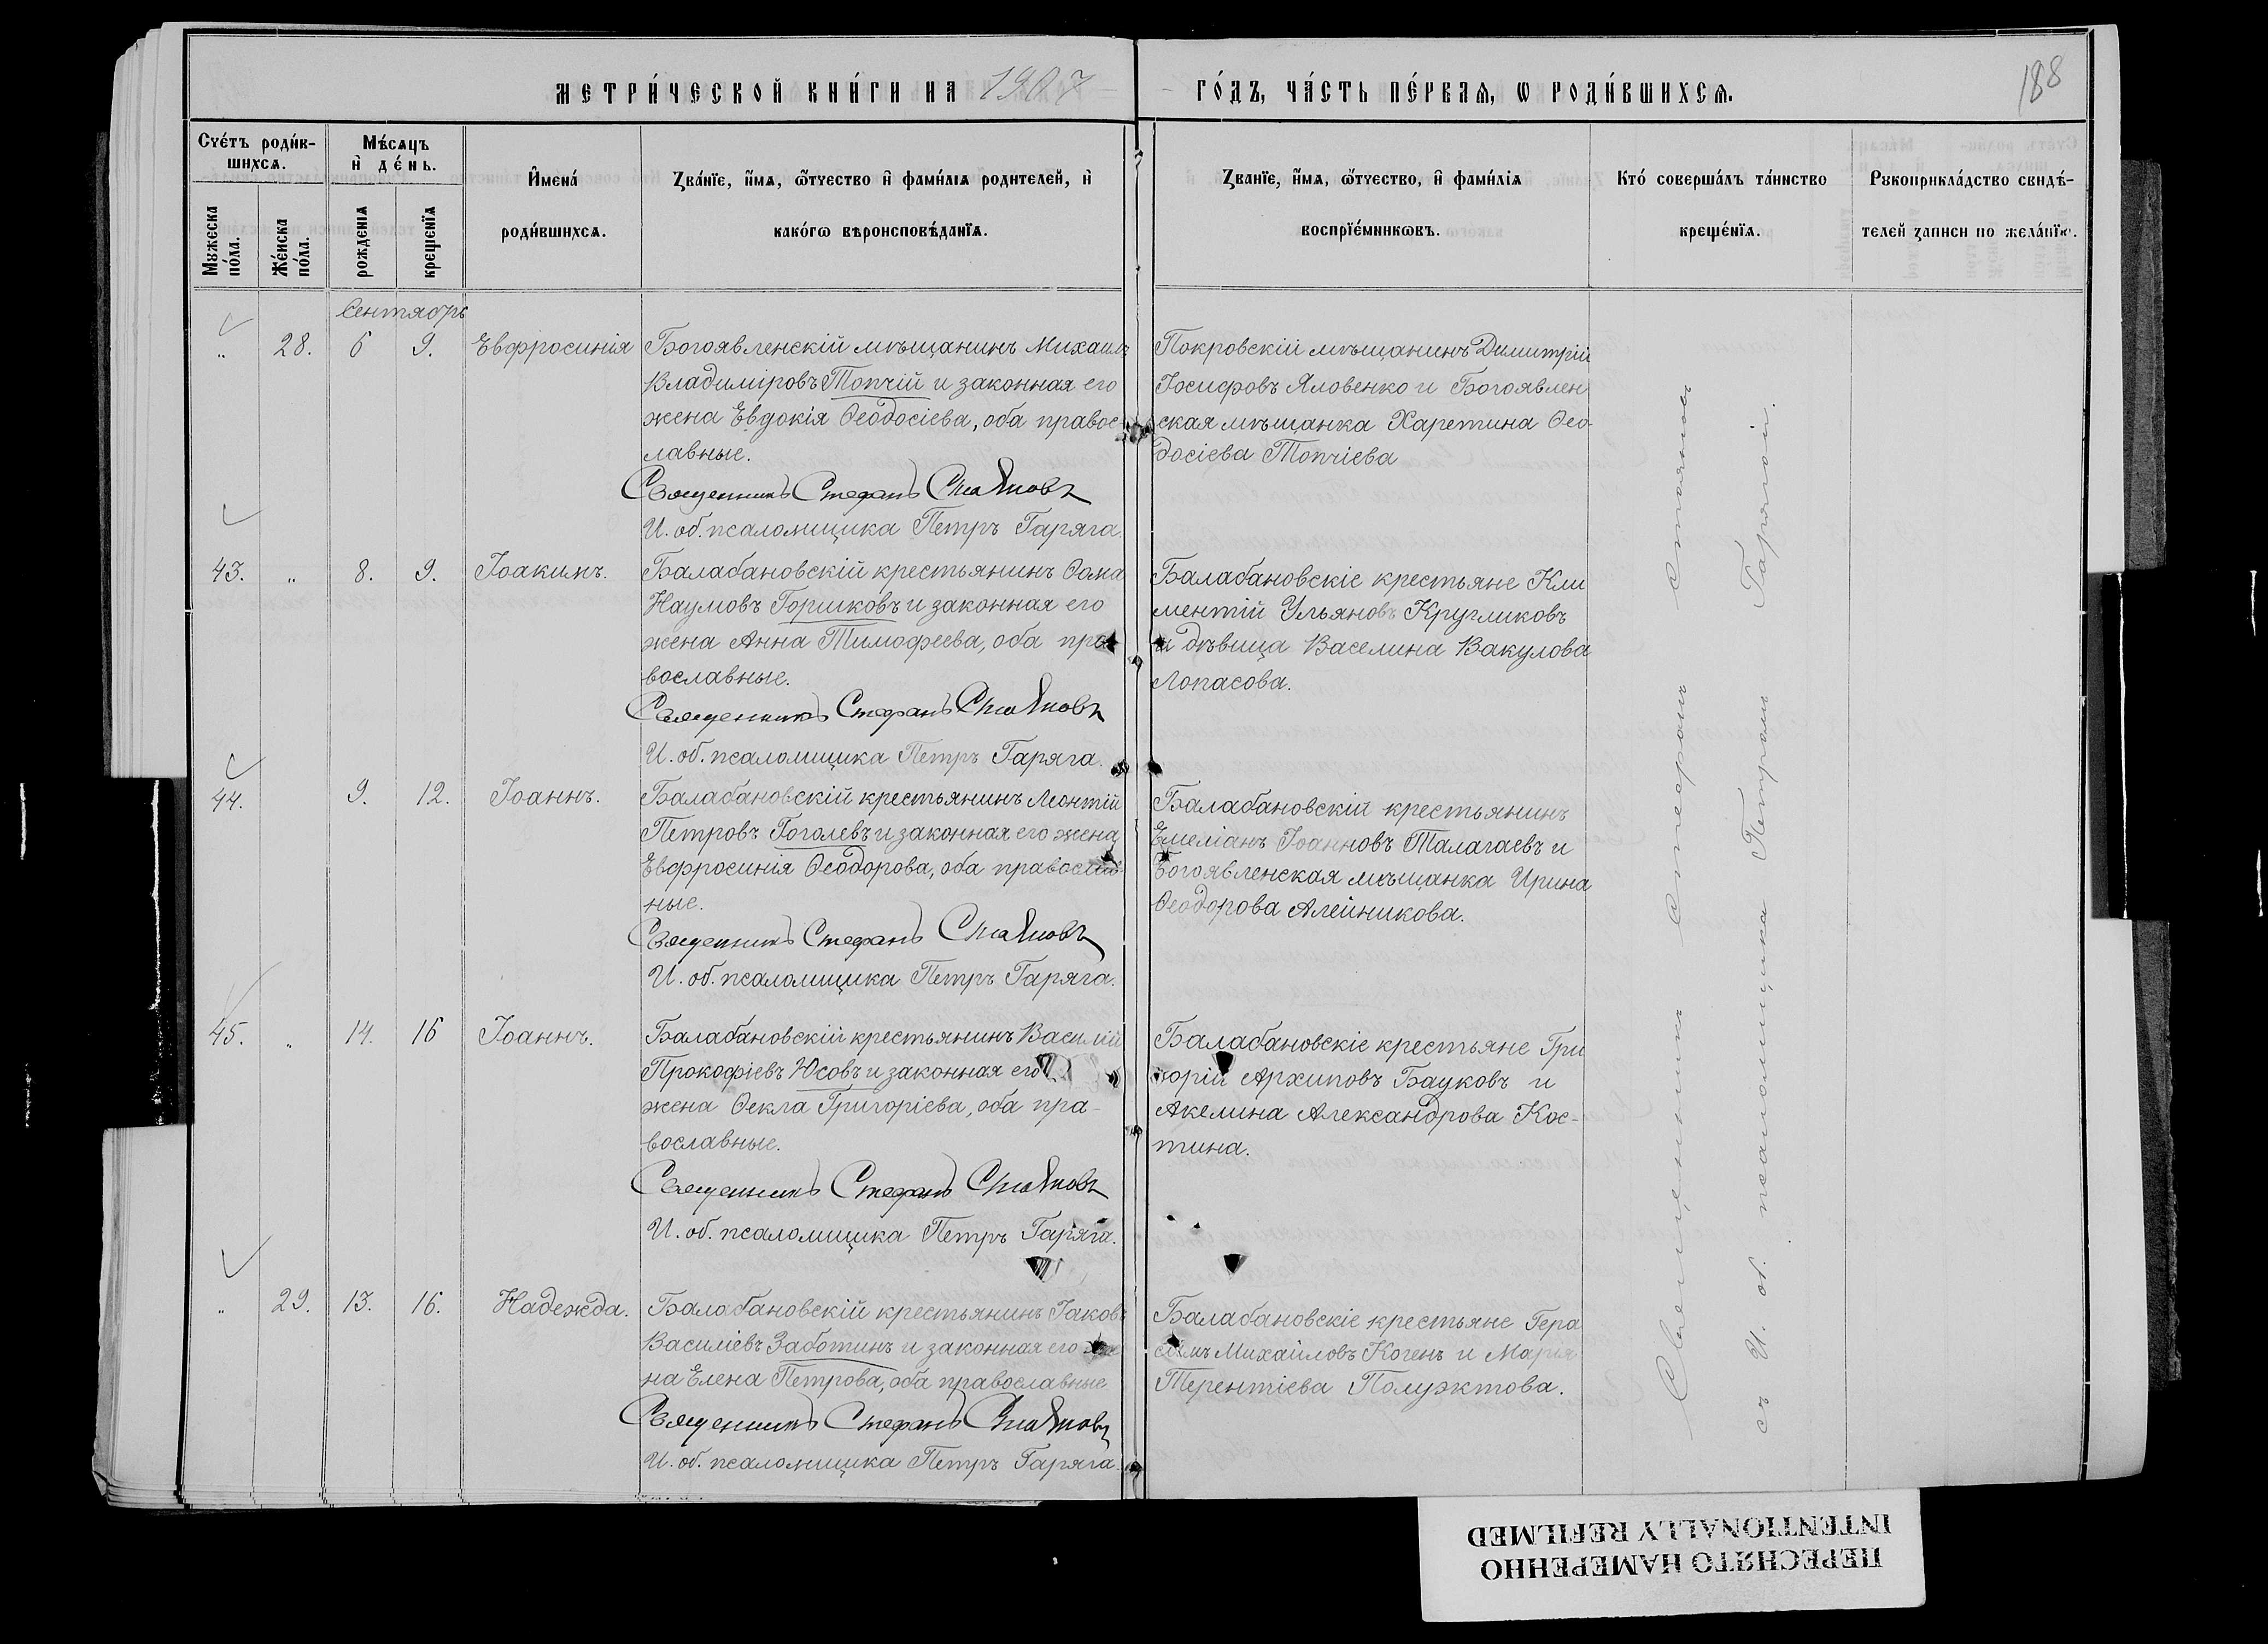 МЕТРИ́ЧЕСКОЙ КНИ́ГИ НА 1907
ГО́ДЪ, ЧА́СТЬ ПЕ́РВАѦ, Ѡ РОДИ́ВШИХСѦ.
188
Счéтъ роди́в-
шихсѧ.
Мꙋжеска
по́ла.
Же́нска
по́ла.
Мѣ́сѧцъ
и҆ де́нь.
рожденїѧ
крещенїѧ
И҆мена́
роди́вшихсѧ.
Ꙁва́нїе, и҆́мѧ, ѻ҆́тчество и҆ фами́лїѧ родителей, и҆
како́гѡ вѣроисповѣ́данїѧ.
Ꙁванїе, и҆́мѧ, ѻ҆́тчество, и҆ фами́лїѧ
воспрїе́мникѡвъ.
Кто́ соверша́лъ та́инство
креще́нїѧ.
Рꙋкоприкла́дство свидѣ́-
телей записи по жела́нїю.
Сентябрь
„ 28. 6 9. Евфросинія
Богоявленскій мѣщанинъ Михаилъ
Владиміровъ Топчій и законная его
жена Евдокія Ѳеодосіева, оба правос
лавные.
Священникъ Стефанъ Стояновъ
И. об. псаломщика Петръ Гаряга.
Покровскій мѣщанинъ Димитрій
Іосифовъ Яловенко и Богоявлен
ская мѣщанка Харетина Ѳео-
досіева Топчіева
43. „ 8. 9. Іоакимъ.
Балабановскій крестьянинъ Ѳома
Наумовъ Горшковъ и законная его
жена Анна Тимофеева, оба пра
вославные.
Священникъ Стефанъ Стояновъ
И. об. псаломщика Петръ Гаряга.
Балабановскіе крестьяне Кли
ментій Ульяновъ Кругликовъ
и дѣвица Васелина Вакулова
Лопасова.
44. 9. 12. Іоаннъ.
Балабановскій крестьянинъ Леонтій
Петровъ Гоголевъ и законная его жена
Евфросинія Ѳеодорова, оба православ
ные.
Священникъ Стефанъ Стояновъ
И. об. псаломщика Петръ Гаряга.
Балабановскій крестьянинъ
Емеліанъ Іоанновъ Талагаевъ и
Богоявленская мѣщанка Ирина
Ѳеодорова Алейникова.
45. „ 14. 16 Іоаннъ.
Балабановскій крестьянинъ Василій
Прокофіевъ Юсовъ и законная его
жена Ѳекла Григоріева, оба пра-
вославные.
Священникъ Стефанъ Стояновъ
И. об. псаломщика Петръ Гаряга.
Балабановскіе крестьяне Гри
горій Архиповъ Бауковъ и
Акелина Александрова Кос-
тина.
„ 29. 13. 16. Надежда.
Балабановскій крестьянинъ Іаковъ
Василіевъ Заботинъ и законная его же
на Елена Петрова, оба православные
Священникъ Стефанъ Стояновъ
И. об. псаломщика Петръ Гаряга.
Балабановскіе крестьяне Гера
симъ Михайловъ Когенъ и Марія
Терентіева Полуэктова.
Священникъ Стефанъ Стояновъ
съ И. об. псаломщика Петромъ Гарягой.
ПЕРЕСНЯТО НАМЕРЕННО
INTENTIONALLY REFILMED